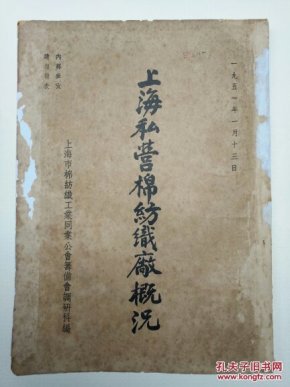 一九五一年一月十三日
上海私营棉纺织厰概況
上海市棉紡織工業同業公會籌備會調研科編
內部參攷
請勿發表
孔夫子旧书网